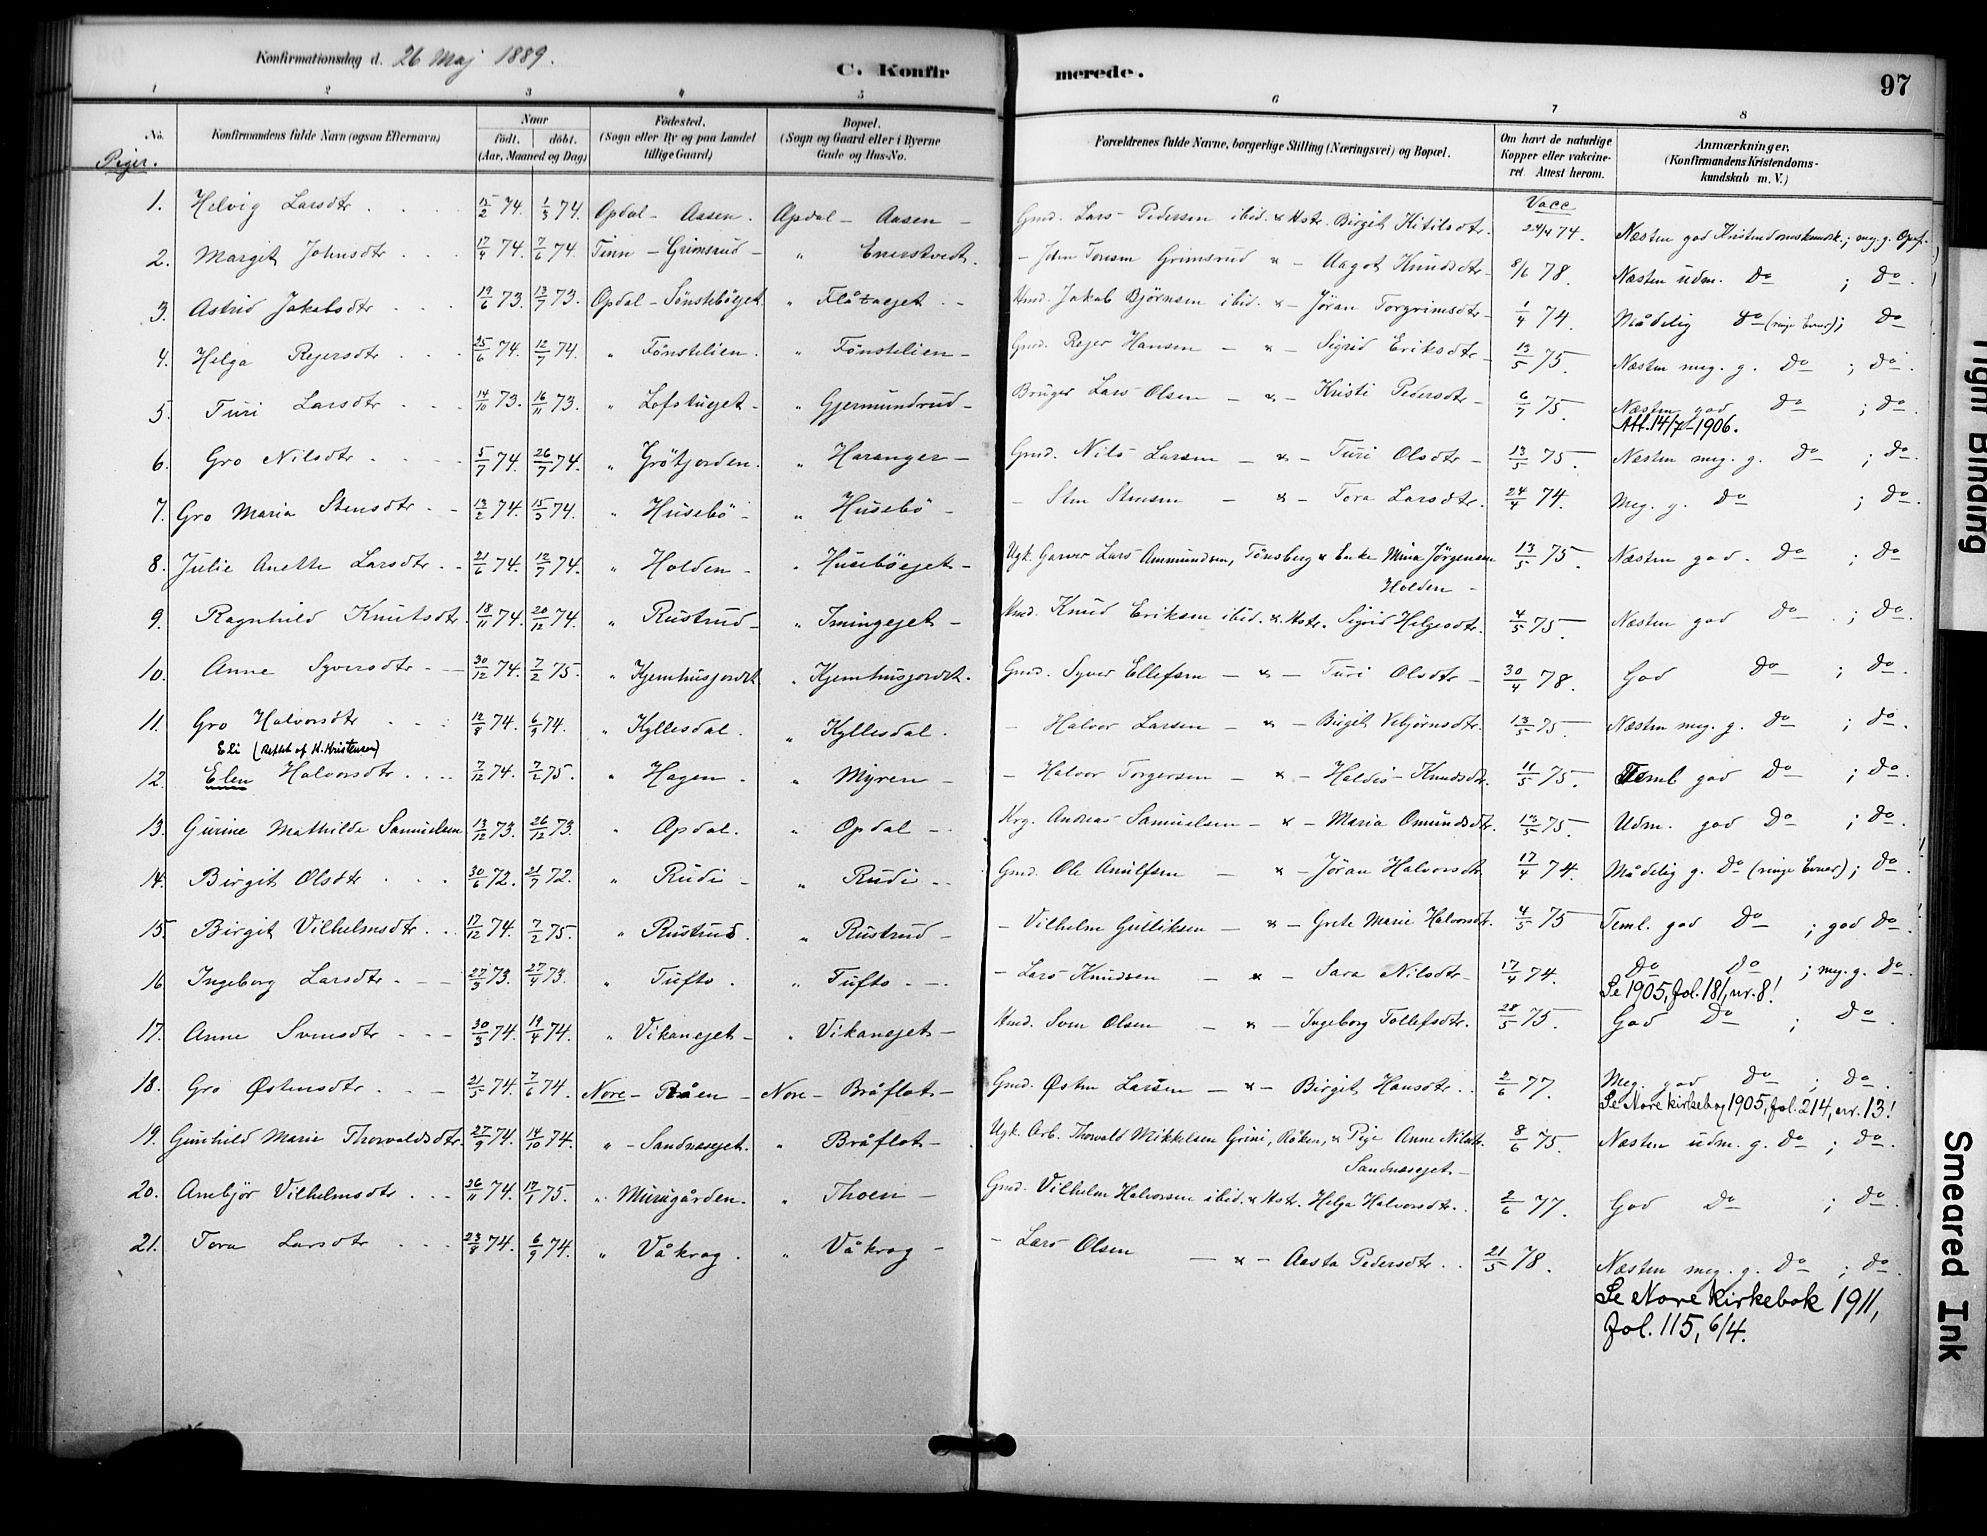 Konfirmationsdag d. 26 Maj 1889.
C. Konfir merede. 97
1 2 3 4 5 6 7 8
No. Konfirmandens fulde Navn (ogsaa Efternavn) Naar født. døbt. (Aar, Maaned og Dag) Fødested. (Sogn eller By og paa Landet tillige Gaard) Bopæl. (Sogn og Gaard eller i Byerne Gade og Hus-No. Forældrenes fulde Navne, borgerlige Stilling (Næringsvei) og Bopæl. Om havt de naturlige Kopper eller vakcineret. Attest herom. Anmærkninger. (Konfirmandens Kristendomskundskab m. V.)
Piger.
Vacc
1. Helvig Larsdtr 15/2 74. 1/3 74. Opdal - Aasen. Opdal - Aasen - Gmd. Lars Pedersen ibid. & Hstr. Birgit Kitilsdtr. 24/4 74. Næsten god Kristendomskundsk.; meg. g. Opf.
2. Margit Johnsdtr 17/4 74. 7/6 74. Tinn - Grimsrud - " Enerstvedt. - John Tonsen Grimsrud & - Aagot Knudsdtr - 8/6 78. Næsten udm. Do ; Do.
3. Astrid Jakobsdtr 19/6 73. 13/7 73. Opdal - Sönsteböejet " Flåtaejet - Hmd. Jakob Bjørnsen ibid. & - Jøran Torgrimsdtr - 1/4 74. Mådelig Do (ringe Evner); Do
4. Helga Rejersdtr 25/6 74. 12/7 74. " Fönstelien. " Fönstelien - Gmd. Rejer Hansen - & - Sigrid Eriksdtr - 13/5 75. Næsten meg. g. Do ; Do.
5. Turi Larsdtr 14/10 73. 16/11 73. " Loftuejet - " Gjermundrud - Bruger Lars Olsen - & - Kristi Pedersdtr - 6/7 75. Næsten god Do ; Do.
Att. 14/7 - 1906.
6. Gro Nilsdtr 5/7 74. 26/7 74. " Grötjorden. " Haranger - Gmd. Nils Larsen - & - Turi Olsdtr - 13/5 75. Næsten meg. g. Do ; Do.
7. Gro Maria Stensdtr 13/2 74. 15/3 74. " Husebö - " Husebö - - Sten Stensen - & - Tora Larsdtr. 24/4 74. Meg. g. Do ; Do.
8. Julie Anette Larsdtr 21/6 74. 12/7 74. " Holden - " Huseböejet - Ugk. Garver Lars Ammundsen, Tönsberg & Enke Mina Jørgensen 13/5 75. Næsten god. Do ; Do
Holden -
9. Ragnhild Knutsdtr. 18/11 74. 20/12 74. " Rustrud - " Imingejet - Hmd. Knud Eriksen ibid. & Hstr. Sigrid Helgesdtr. 4/5 75. Næsten god Do ; Do.
10. Anne Syversdtr 30/12 74. 7/2 75. " Kjemhusjordet " Kjemhusjordet. Gmd. Syver Ellefsen - & - Turi Olsdtr - 30/4 78. God Do ; Do.
11. Gro Halvorsdtr 12/8 74. 6/9 74. " Kyllesdal. " Kyllesdal. - Halvor Larsen - & - Birgit Vebjørnsdtr. 13/5 75. Næsten meg. g. Do ; Do.
Eli (Rettet af H. Kristensen)
12. Elen Halvorsdtr. 7/12 74. 7/2 75. " Hagen - " Myren - - Halvor Torgersen - & - Haldis Knudsdtr. 11/5 75. Teml god Do ; Do.
13. Gurine Mathilde Samuelsen 13/12 73. 26/12 73. " Opdal. " Opdal - Krg. Andreas Samuelsen - & - Maria Omundsdtr. 13/5 75. Udm. god Do ; Do.
14. Birgit Olsdtr 30/6 72. 21/7 72. " Rudi - " Rudi - Gmd. Ole Anulfsen - & - Jøran Halvorsdtr 17/4 74. Mådelig g. Do (ringe Evner); Do.
15. Birgit Vilhelmsdtr. 17/12 74. 7/2 75. " Rustrud. " Rustrud - - Vilhelm Gulliksen - & - Grete Marie Halvorsdtr. 4/5 75 Teml. god Do ; god Do.
16 Ingeborg Larsdtr 27/3 73. 27/4 73. " Tufto. " Tufto - - Lars Knudsen - & - Sara Nilsdtr - 17/4 74. Do Do ; meg. g. Do.
Se 1905, fol. 181, nr. 8!
17. Anne Svensdtr 30/3 74. 19/4 74. " Vikanejet - " Vikanejet - Hmd. Sven Olsen - & - Ingeborg Tollefsdtr. 28/5 75. God Do ; Do.
18. Gro Østensdtr 21/5 74. 7/6 74. Nore - Råen - Nore - Bråflot - Gmd. Østen Larsen - & - Birgit Hansdtr. 2/6 77. Meg. god Do ; Do.
Se Nore kirkebog 1905, fol. 214, nr. 13!
19. Gunhild Marie Thorvaldsdtr. 27/9 74. 14/10 74. " - Sandnæsejet. " Bråflot - Ugk. Arb. Thorvald Mikkelsen Grini, Röken, & Pige Anne Nilsdtr. 8/6 75. Næsten udm. g. Do ; Do.
Sandnæsejet. -
20. Ambjör Vilhelmsdtr. 26/11 74. 17/1 75. " Murigården. " Thoen - Gmd. Vilhelm Halvorsen ibid. & Hstr. Helga Halvorsdtr. 2/6 77. God Do ; Do.
21. Tora Larsdtr 23/8 74. 6/9 74. " Våkrag. " Våkrag - - Lars Olsen - & - Aasta Pedersdtr. 21/5 78. Næsten meg. g. Do ; Do.
Se Nore kirkebok 1911,
fol. 115, 6/4.
Tight Binding
Smeared Ink